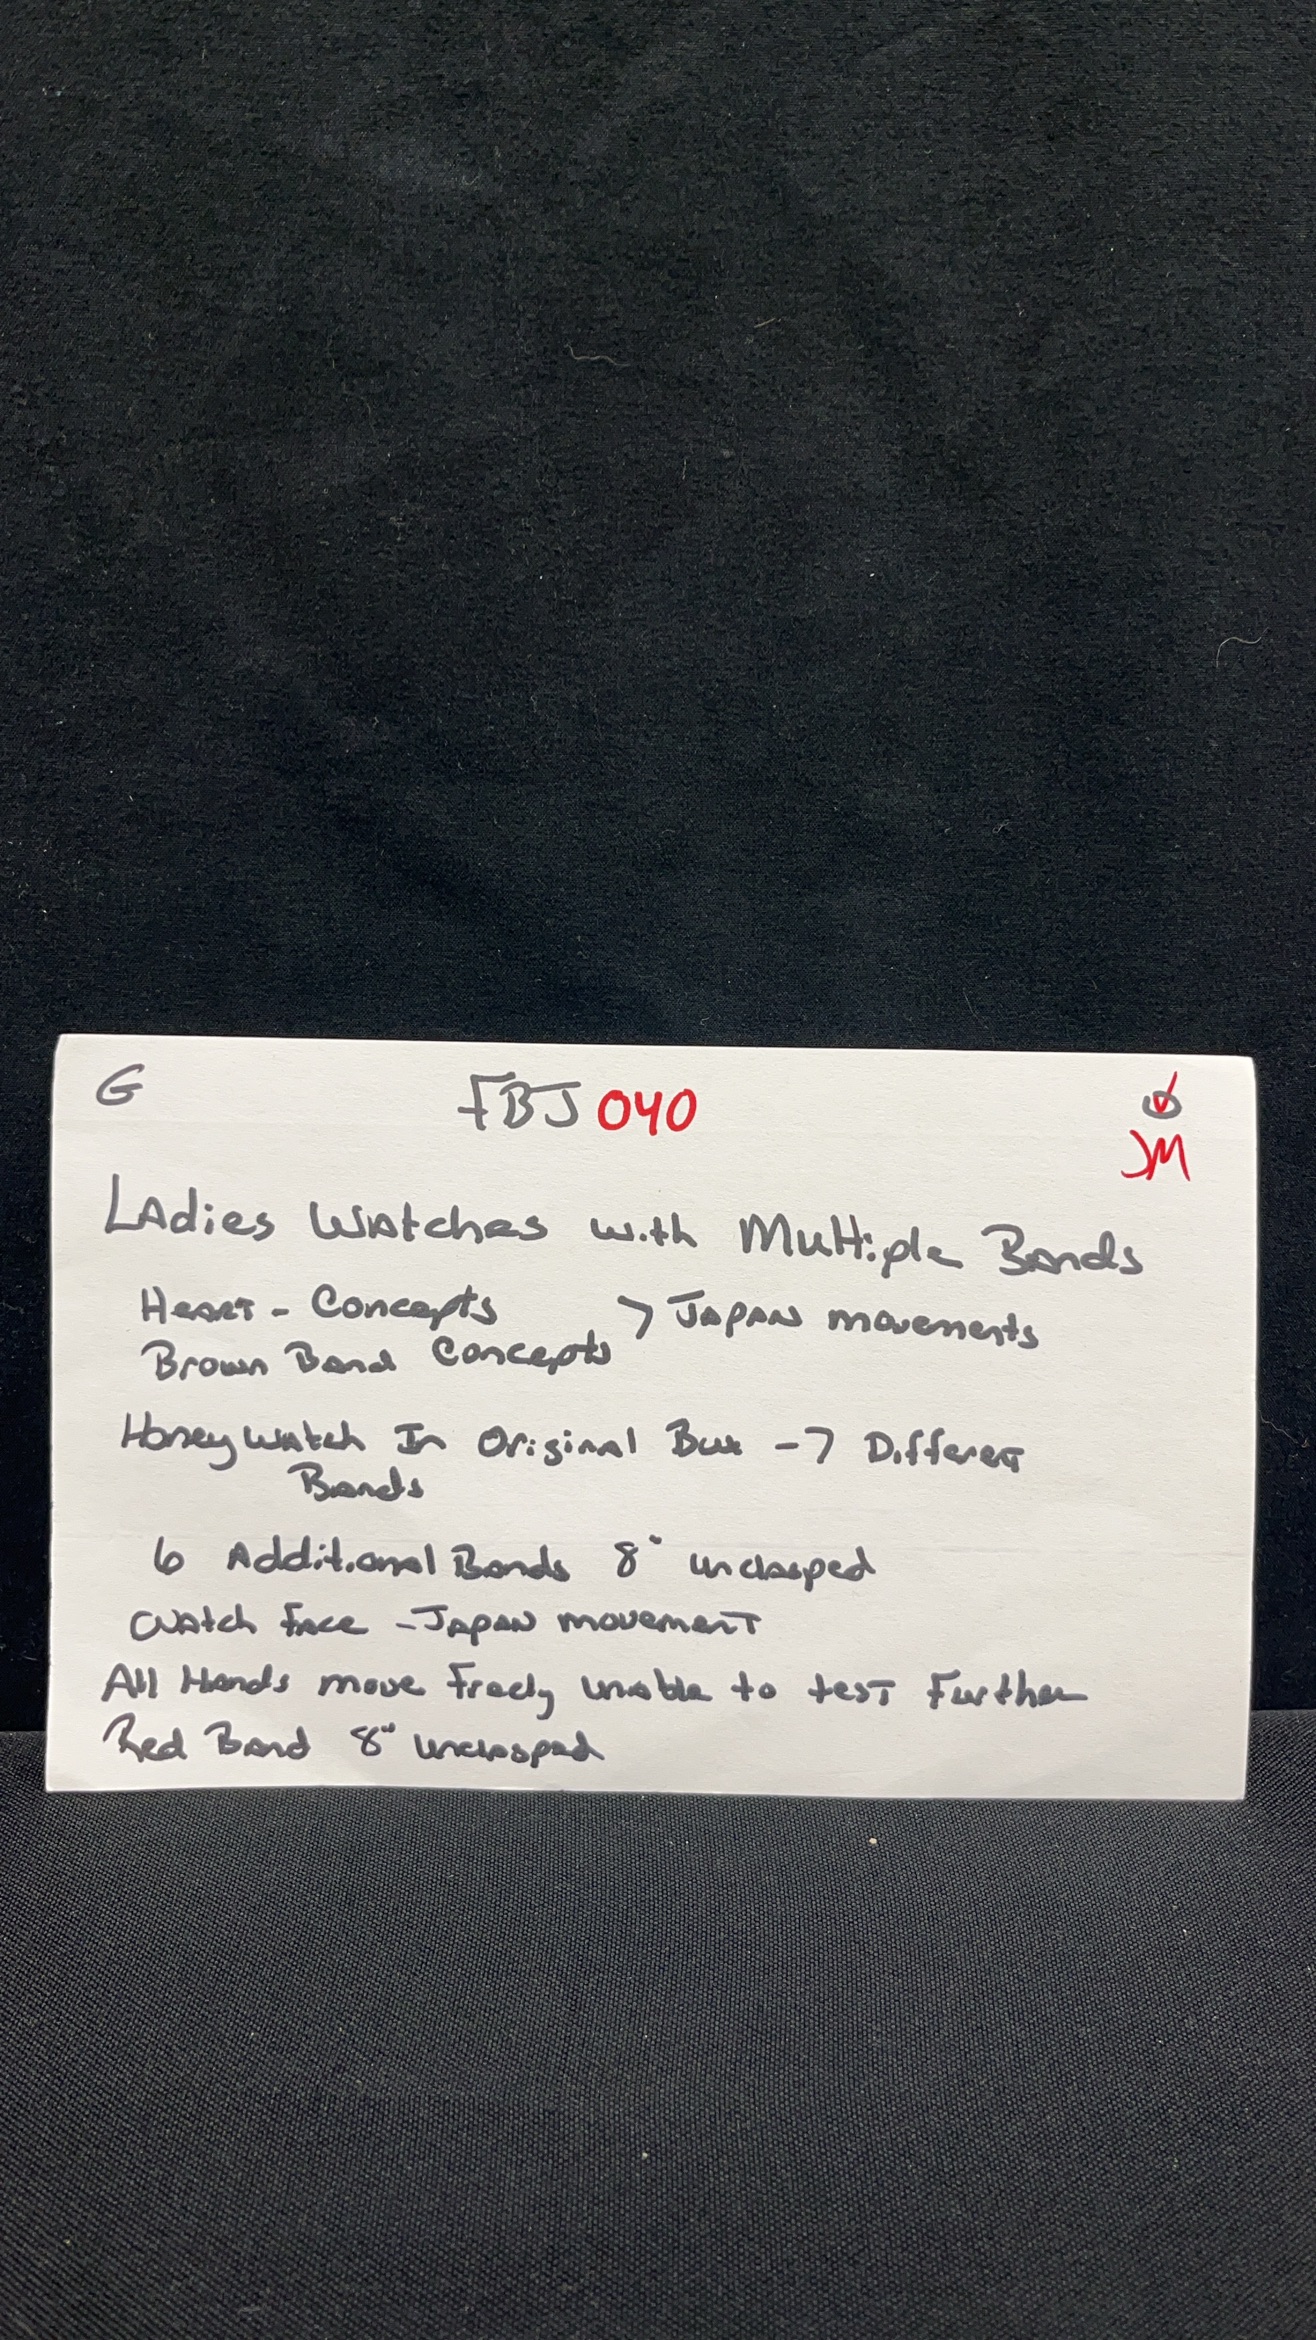 G FBJ 040
JM
Ladies Watches with Multiple Bands
Heart - Concepts > Japan movements
Brown Band Concepts
Honey Watch In Original Box - 7 Different
Bands
6 Additional Bands 8" unclasped
Watch Face - Japan movement
All Hands move Freely unable to test Further
Red Band 8" unclasped